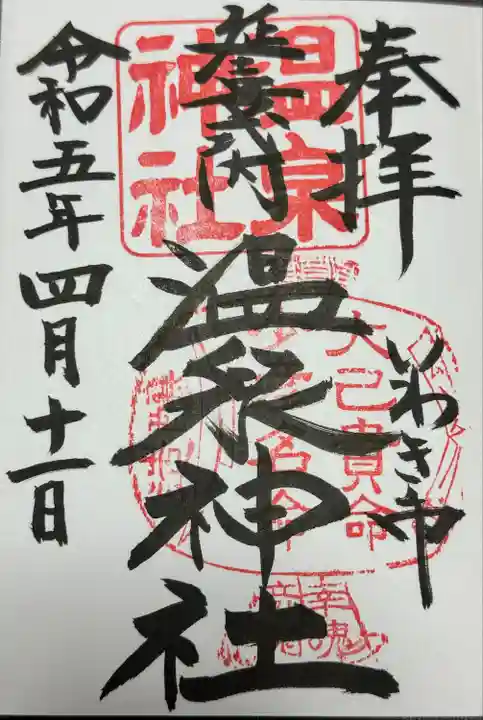 奉拝
いわき市
延喜式内
温泉神社
令和五年四月十一日
温泉
神社
大己貴命
少彦名命